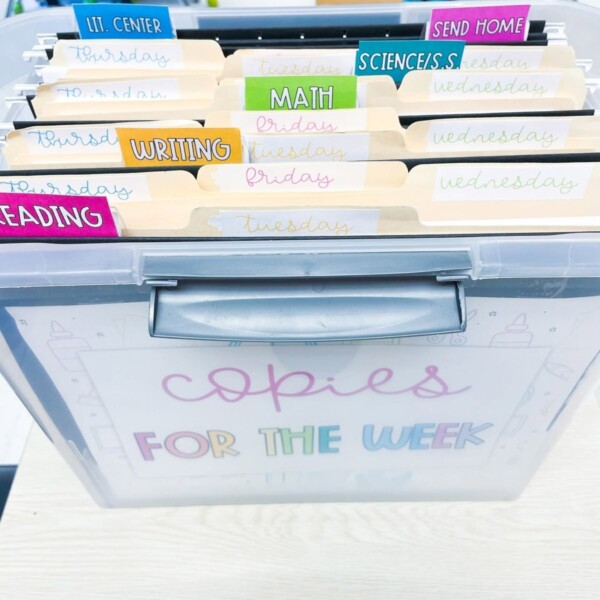 LIT. CENTER
SEND HOME
thursday
tuesday
SCIENCE/S.S.
wednesday
thursday
MATH
wednesday
friday
thursd
WRITING
tuesday
wednesday
thursday
friday
wednesday
EADING
tuesday
copies
FOR THE WEEK